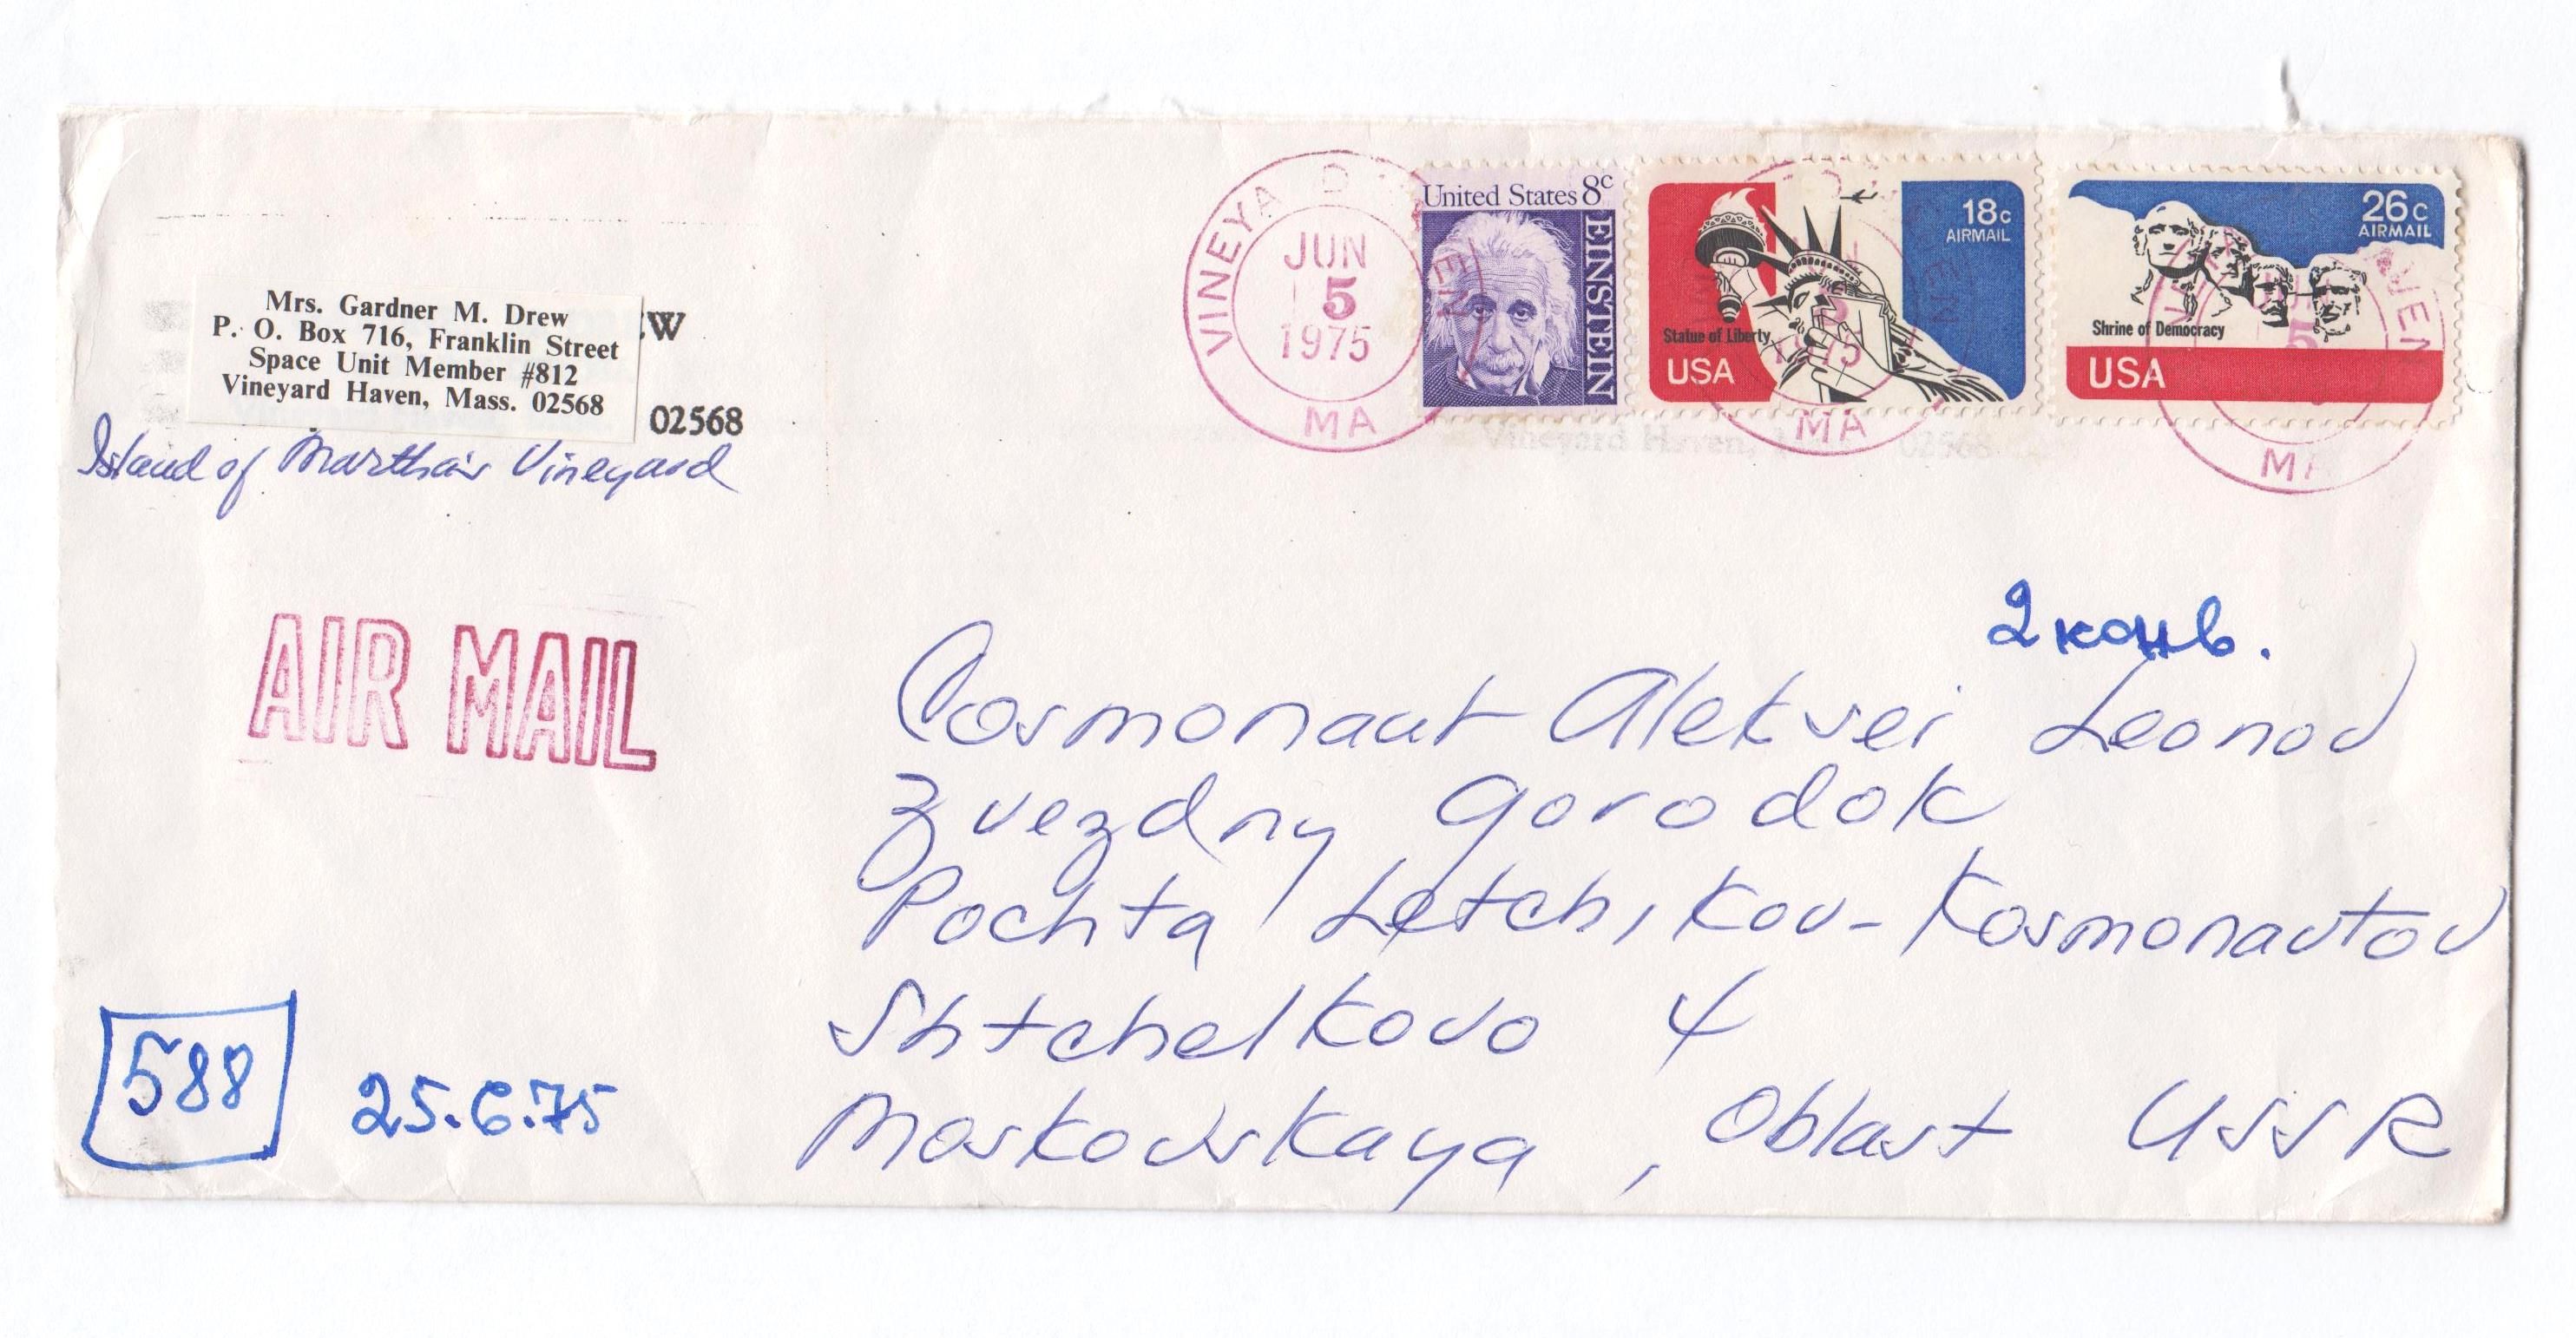 Mrs. Gardner M. Drew
P. O. Box 716, Franklin Street
Space Unit Member #812
Vineyard Haven, Mass. 02568
W
02568
Island of Martha's Vineyard
VINEYA D
EN
JUN
5
1975
MA
United States 8c
EINSTEIN
18c
AIRMAIL
Statue of Liberty
USA
EN
5
1975
MA
26c
AIRMAIL
Shrine of Democracy
USA
VEN
5
MA
Vineyard Haven,
02568
AIR MAIL
2 конв.
Cosmonaut Aleksei Leonov
Zvezdny Gorodok
Pochta Letchikov-Kosmonavtov
Shtchelkovo 4
Moskovskaya, Oblast USSR
588
25.6.75